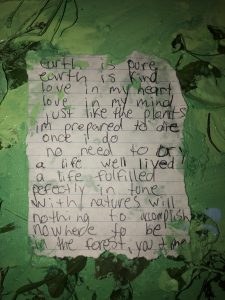 earth is pure
earth is kind
love in my heart
love in my mind
just like the plants
im prepared to die
once i do
no need to cry
a life well lived
a life fulfilled
perfectly in tune
with natures will
nothing to accomplish
nowhere to be
in the forest, you &